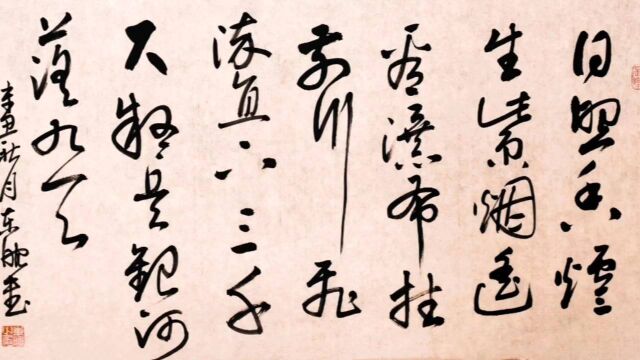 日照香爐
生紫烟遥
看瀑布挂
前川飛
流直下三千
尺疑是銀河
落九天
辛丑秋月东